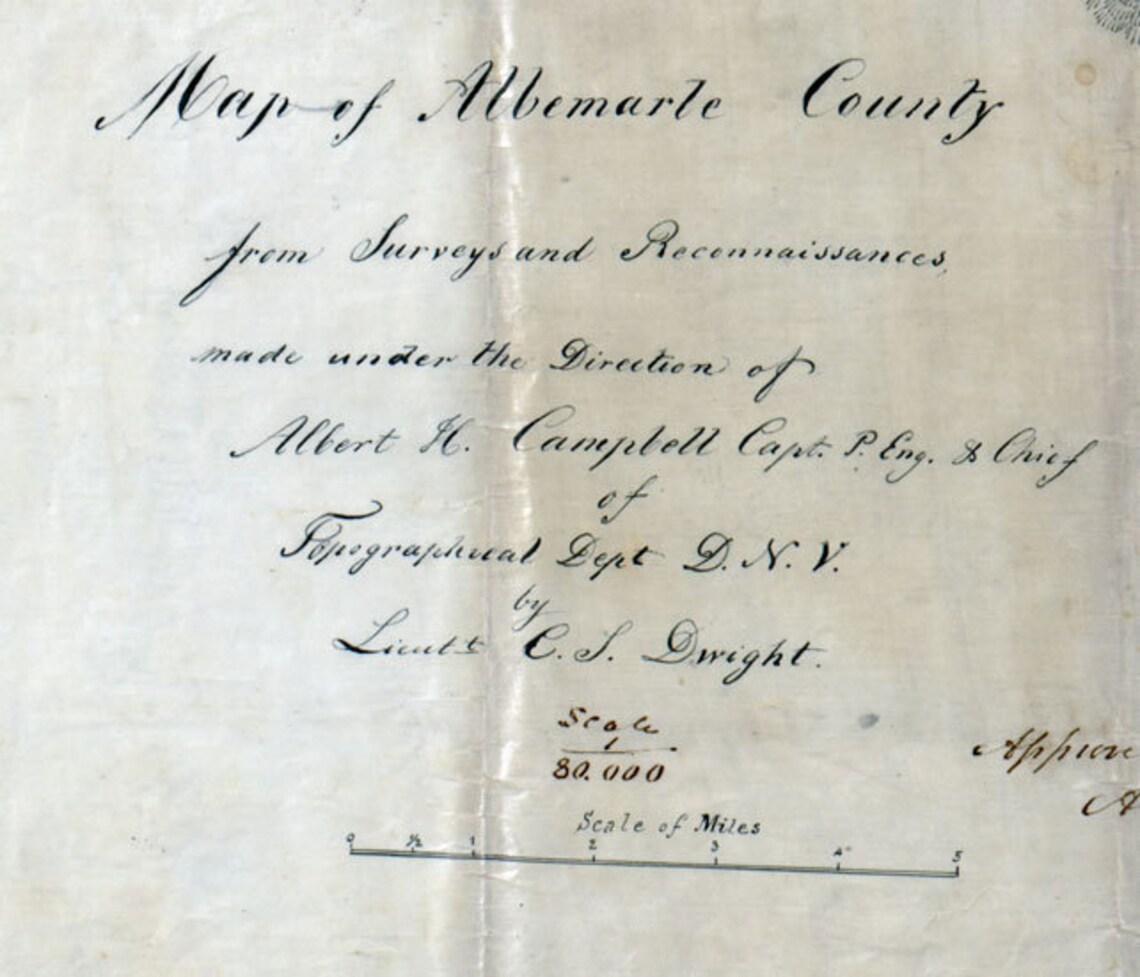 Map of Albemarle County
from Surveys and Reconnaissances,
made under the Direction of
Albert H. Campbell Capt. P. Eng. & Chief
of
Topographical Dept D. N. V.
by
Lieutt C. S. Dwight.
Scale
1
80.000
Approve
A
Scale of Miles
0 1/2 1 2 3 4 5